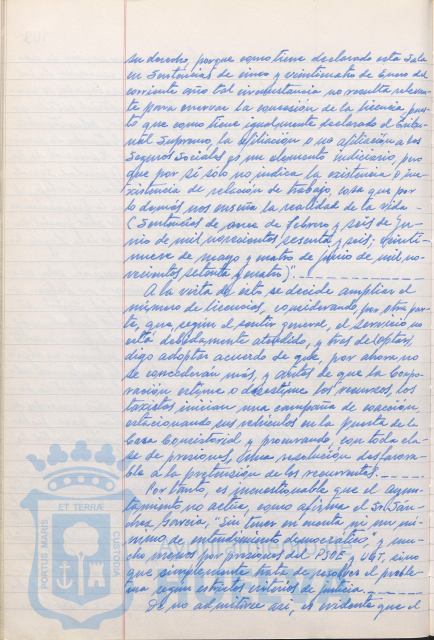 su derecho, porque como tiene declarado esta Sala
en Sentencias de cinco y veinticuatro de Enero del
corriente año tal circunstancia no resulta relevan-
te para enervar la concesión de la licencia pues-
to que como tiene igualmente declarado el Tribu-
nal Supremo, la afiliación o no afiliación a los
Seguros Sociales es un elemento indiciario, pero
que por sí solo no indica la existencia o ine-
xistencia de relación de trabajo, cosa que por
lo demás nos enseña la realidad de la vida
(Sentencias de once de febrero y seis de Ju-
nio de mil novecientos sesenta y seis; veinti-
nueve de mayo y cuatro de Junio de mil no-
vecientos setenta y cuatro)".
A la vista de esto se decide ampliar el
número de licencias, considerando, por otra par-
te, que según el sentir general, el servicio no
está debidamente atendido, y tras de
digo adoptar acuerdo de que, por ahora no
se concederán más, y antes de que la Corpo-
ración estime o desestime los recursos, los
taxistas inician una campaña de coacción
estacionando sus vehículos en la puerta de la
Casa Consistorial y procurando, con toda cla-
se de presiones, una resolución desfavora-
ble a la pretensión de los recurrentes.
Por tanto, es incuestionable que el Ayun-
tamiento no actúa, como afirma el Sr. Sán-
chez García, "Sin tener en cuenta ni un mí-
nimo de entendimiento democrático" y mu-
cho menos por presiones del PSOE y UGT, sino
que simplemente trata de resolver el proble-
ma según estrictos criterios de justicia.
De no admitirse así, es evidente que el
ET TERRÆ
PORTUS MARIS
CUSTODIA